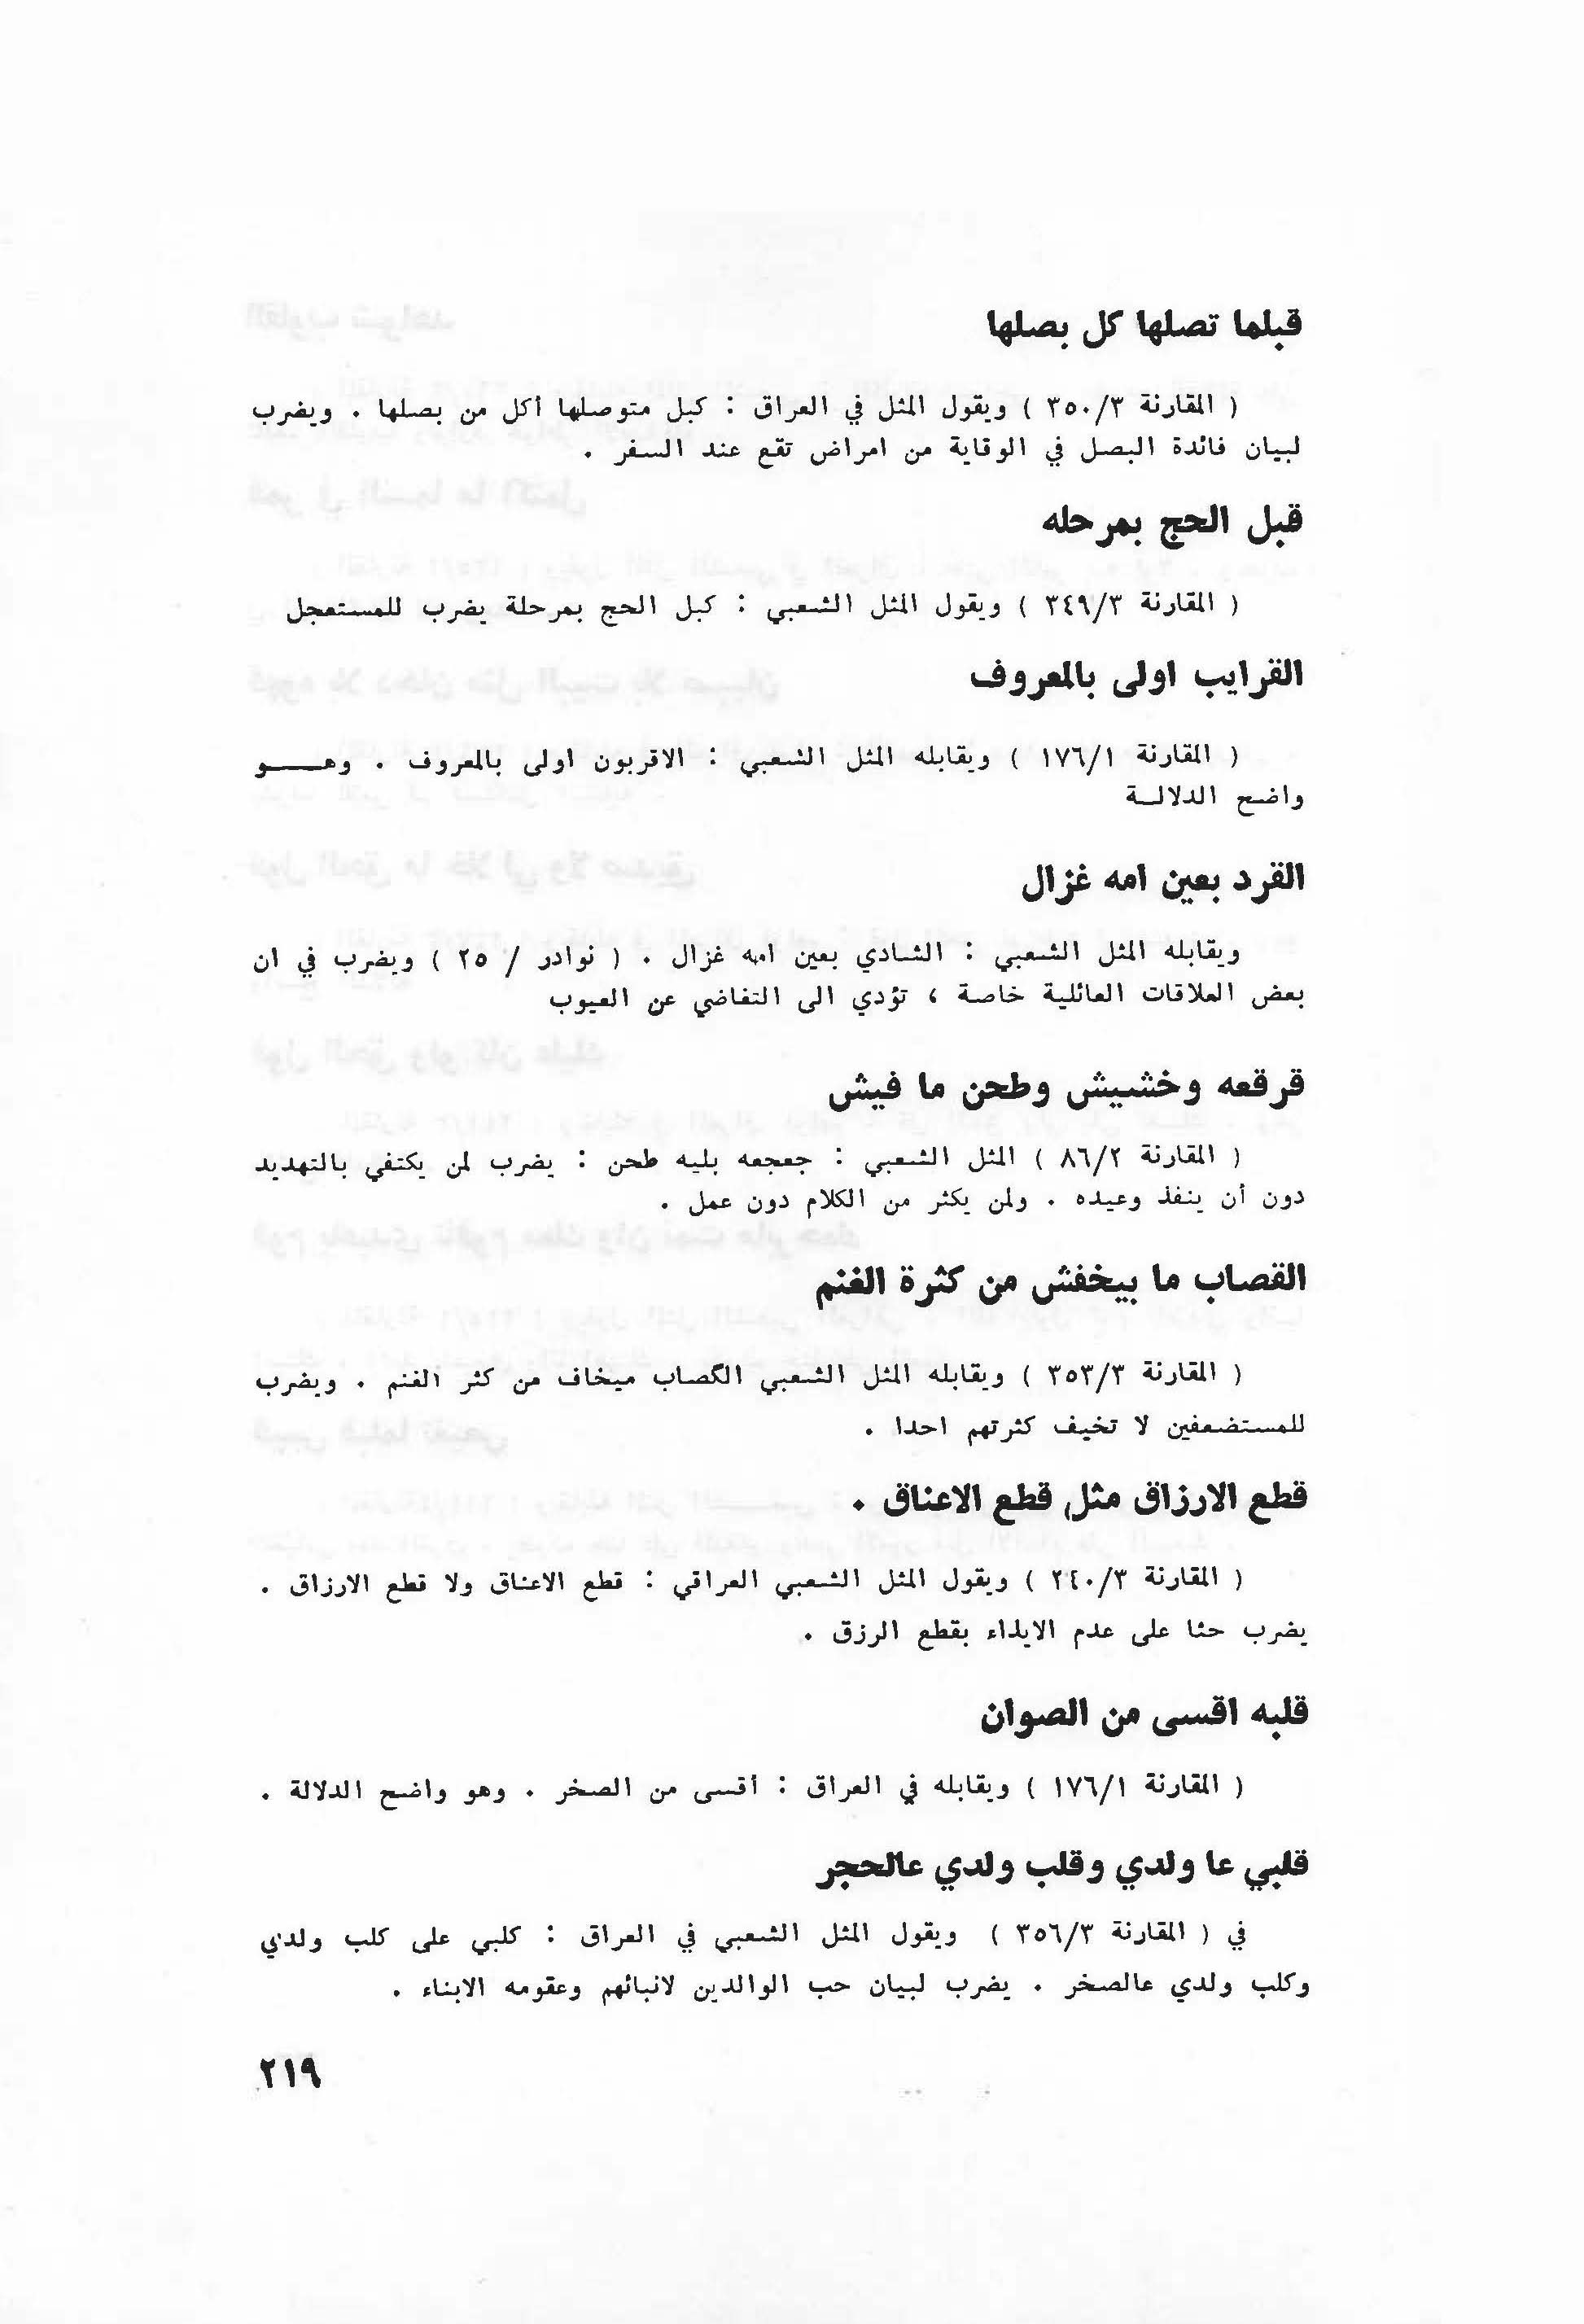 قبلما تصلها كل بصلها
( المقارنة ٣٥٠/٣ ) ويقول المثل في العراق : كبل متوصلها أكل من بصلها . ويضرب
لبيان فائدة البصل في الوقاية من امراض تقع عند السفر .
قبل الحج بمرحله
( المقارنة ٣٤٩/٣ ) ويقول المثل الشعبي : كبل الحج بمرحلة يضرب للمستعجل
القرايب اولى بالمعروف
( المقارنة ١٧٦/١ ) ويقابله المثل الشعبي : الاقربون اولى بالمعروف . وهو
واضح الدلالة
القرد بعين امه غزال
ويقابله المثل الشعبي : الشادي بعين امه غزال . ( نوادر / ٢٥ ) ويضرب في ان
بعض العلاقات العائلية خاصة ، تؤدي الى التغاضي عن العيوب
قرقعه وخشيش وطحن ما فيش
( المقارنة ٨٦/٢ ) المثل الشعبي : جعجعه بليه طحن : يضرب لمن يكتفي بالتهديد
دون أن ينفذ وعيده . ولمن يكثر من الكلام دون عمل .
القصاب ما بيخفش من كثرة الغنم
( المقارنة ٣٥٣/٣ ) ويقابله المثل الشعبي الگصاب ميخاف من كثر الغنم . ويضرب
للمستضعفين لا تخيف كثرتهم احدا .
قطع الارزاق مثل قطع الاعناق .
( المقارنة ٢٤٠/٣ ) ويقول المثل الشعبي العراقي : قطع الاعناق ولا قطع الارزاق .
يضرب حثا على عدم الايذاء بقطع الرزق .
قلبه اقسى من الصوان
( المقارنة ١٧٦/١ ) ويقابله في العراق : أقسى من الصخر . وهو واضح الدلالة .
قلبي عا ولدي وقلب ولدي عالحجر
في ( المقارنة ٣٥٦/٣ ) ويقول المثل الشعبي في العراق : كلبي على كلب ولدي
وكلب ولدي عالصخر . يضرب لبيان حب الوالدين لانبائهم وعقومه الابناء .
٢١٩